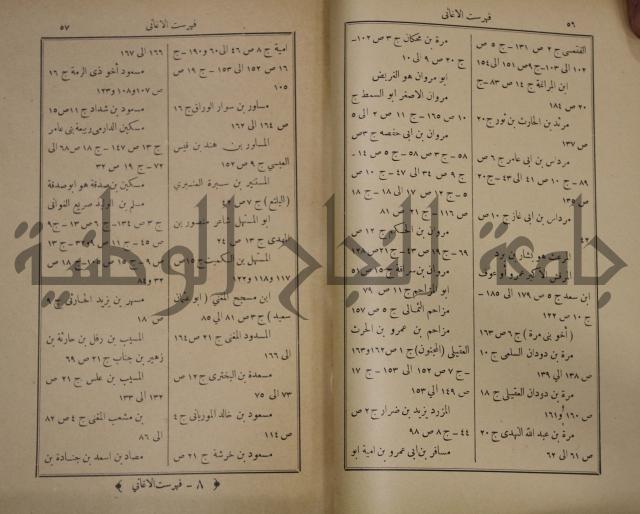 ٥٦
فهرست الاغانى
الفقعسى ج ٢ ص ١٣١ - ج ٥ ص
١٠٢ الى ١٠٣ - ج ٩ ص ١٥١ الى ١٥٤
ابن المراغة ج ١٤ ص ٨٣ - ج
٢٠ ص ١٨٤
مرثد بن الحارث بن ثور ج ٢٠
ص ١٣٧
مرداس بن ابى عامر ج ٦ ص
٨٩ - ج ١٠ ص ٤١ الى ٤٣ - ج ٢٠
ص ١٣٥
مرداس بن ابى ج ١٠ ص
المرعث هو بشار بن برد
المرقش الاكبر عمرو او عوف
ابن سعد ج ٥ ص ١٧٩ الى ١٨٥ -
ج ١٠ ص ١٢٢
( أخو بنى مرة ) ج ٦ ص ١٦٣
مرة بن دودان السلمى ج ١٠
ص ١٣٨ الى ١٣٩
مرة بن دودان العقيلى ج ١٨
ص ١٦٠ و ١٦١
مرة بن عبد الله النهدى ج ٢٠
ص ٦١ الى ٦٢
مرة بن محكان ج ٣ ص ١٠٢ -
ج ٢٠ ص ٩ الى ١٠
ابو مروان هو الغريض
مروان الاصغر ابو السمط ج
١٠ ص ١٦٥ - ج ١١ ص ٢ الى ٥
مروان بن ابى حفصه ج ٣ ص
٥٨ - ج ٣ ص ٥٨ - ج ٥ ص ١٤ -
ج ٩ ص ٣٤ الى ٤٧ - ج ١٠ ص
٥ - ج ١٢ ص ١٧ الى ١٨ - ج ١٨
ص ١١٦ - ج ٢١ ص ٨١
مروان بن الحكم ج ١٢ ص
٦٩ - ج ١٩ ص ٤٣ - ج ٢١ ص
مروان بن سراقة ج ١٥ ص ٥١
ابو المزاحم ج ١١ ص ٧٩
مزاحم الثمالى ج ٥ ص ١٥٧
مزاحم بن عمرو بن الحرث
العقيلى ( المجنون ) ج ١ ص ١٦٢ و ١٦٣
- ج ٧ ص ١٥٢ الى ١٥٣ - ج ١٧
ص ١٤٩ الى ١٥٣
المزرد يزيد بن ضرار ج ٢ ص
٤٤ - ج ٨ ص ٩٨
مسافر بن ابى عمرو بن امية ابو
فهرست الاغانى
٥٧
امية ج ٨ ص ٤٦ الى ٦٠ و ١٩٠ - ج
١٦ ص ١٥٢ الى ١٥٣ - ج ١٩ ص
١٠٥
مساور بن سوار الوراق ج ١٦
ص ١٦٤ الى ١٦٢
المساور بن هند بن قيس
العبسى ج ٩ ص ١٥٢
المستنير بن سبرة العنبرى
( البلتع ) ج ٧ ص ٤٢
ابو المستهل شاعر منصور بن
المهدى ج ١٣ ص ٢٤
المستهل بن الكميت ج ١٥ ص
١١٧ و ١١٨ و ١٢٢
ابن مسجح المغنى ( ابو عثمان
سعيد ) ج ٣ ص ٨١ الى ٨٥
المسدود المغنى ج ٢١ ص ١٦٤
الى ١٦٦
مسعدة بن البخترى ج ١٢ ص
٧٣ الى ٧٥
مسعود بن خالد الموريانى ج ٤
ص ١١٤
مسعود بن خرشة ج ٢١ ص
١٦٦ الى ١٦٧
مسعود أخو ذى الرمة ج ١٦
ص ١٠٧ و ١٠٨ و ١٢٣
مسعود بن شداد ج ١١ ص ١٥
مسكين الدارمى ربيعة بنى عامر
ج ١٣ ص ١٤٧ - ج ١٨ ص ٦٨ الى
٧٢ - ج ١٩ ص ٣٢
مسكين بن صدقة هو ابو صدقة
مسلم بن الوليد صريع الغوانى
ج ٣ ص ١٣٤ - ج ٦ ص ١٣ - ج ٩
ص ٤٥ - ج ١١ ص ٩ و ٣٢ - ج ١٣
ص ٩ - ج ١٥ ص ١٠٥ - ج ١٨ ص
٣٢ و ٨٤
مسهر بن يزيد الحارثى ج ٩
ص ١٨
المسيب بن رفل بن حارثة بن
زهير بن جناب ج ٢١ ص ٦٩
المسيب بن علس ج ٢١ ص
١٣٢ الى ١٣٣
بن مشعب المغنى ج ٤ ص ٨٢
الى ٨٦
مصاد بن اسعد بن جنادة بن
﴿ ٨ - فهرست الاغاني ﴾
جامعة النجاح الوطنية